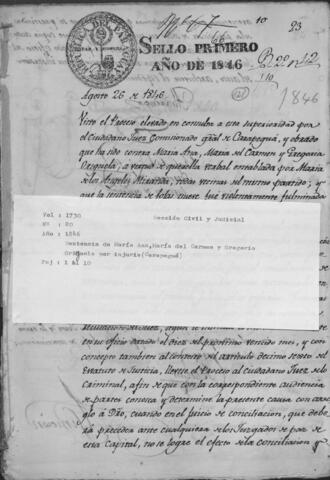 10
23
REPUBLICA DEL PARAGUAY
SELLO PRIMERO
AÑO DE 1846
1846
Agosto 26 de 1846
Visto el Proceso elevado en consulta a esta superioridad por
el Ciudadano Juez Comisionado gral de Carapeguá, y obrado
que ha sido contra Maria Ana, Maria del Carmen y Gregoria
a virtud de querella verbal entablada por Maria
de los Angeles Miranda, todas vecinas del mismo partido; y
que la sentencia de fue violentamente fulminada
Vol : 1730 Sección Civil y Judicial
Nº : 20
Año : 1846
Sentencia de María Ana, María del Carmen y Gregorio
por injuria (Carapeguá)
Paj : 1 al 10
en su oficio datado el diez del proximo vencido mes, y con
concepto tambien al contesto del articulo decimo sesto del
Estatuto de Justicia, llevese el Proceso al Ciudadano Juez de lo
Criminal, afin de que con la correspondiente audiencia
de partes conosca y determine la presente causa con arre
glo á Dro, cuando en el juicio de conciliacion, que debe
rá preceder ante cualquiera de los Juzgados de paz de
esta Capital, no se logre el efecto de la conciliacion y